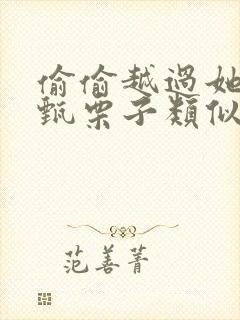 偷偷越過她
甄栗子類似
范善菁